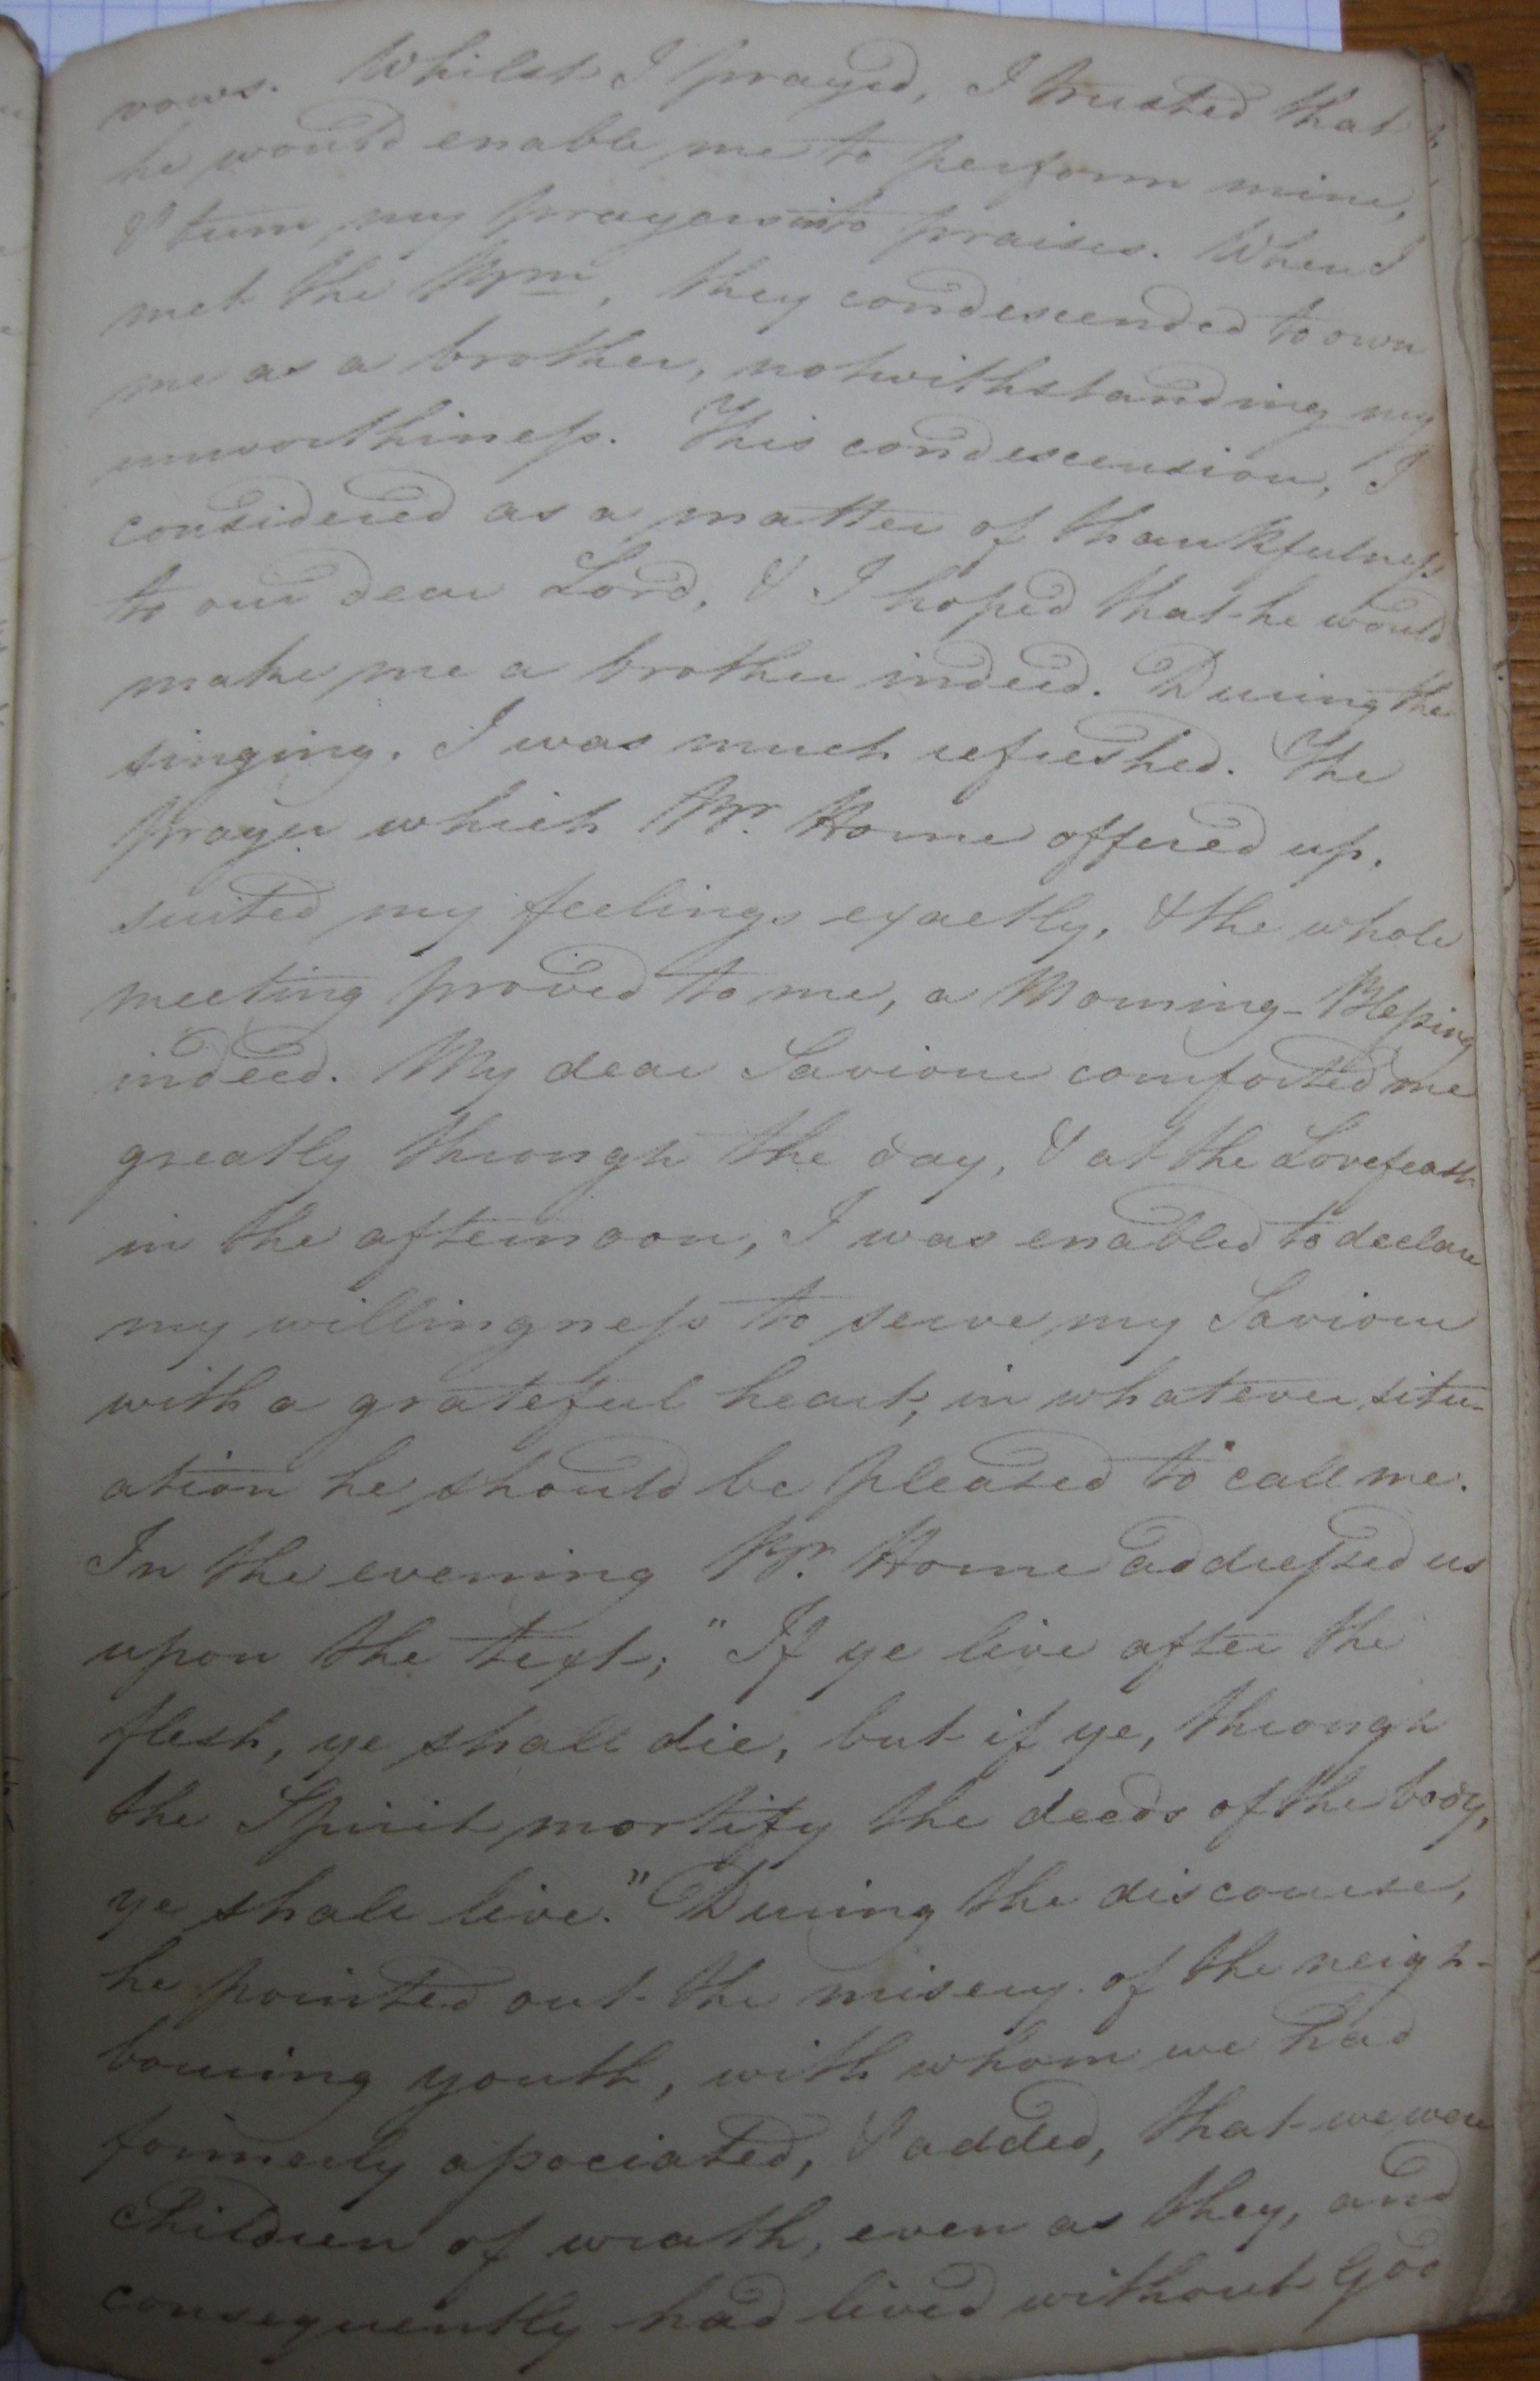 vows. Whilst I prayed, I trusted that
he would enable me to perform mine,
& turn my prayers into praises. When I
met the Brn, they condescended to own
me as a brother, notwithstanding my
unworthiness. This condescension, I
considered as a matter of thankfulness
to our dear Lord, & I hoped that he would
make me a brother indeed. During the
singing, I was much refreshed. The
prayer which Br. Horne offered up,
suited my feelings exactly, & the whole
meeting proved to me, a Morning-Blessing
indeed. My dear Saviour comforted me
greatly through the day, & at the Lovefeast
in the afternoon, I was enabled to declare
my willingness to serve my Saviour
with a grateful heart, in whatever situ-
ation he should be pleased to call me.
In the evening Br. Horne addressed us
upon the text; "If ye live after the
flesh, ye shall die, but if ye, through
the Spirit mortify the deeds of the body,
ye shall live." During the discourse,
he pointed out the misery of the neigh-
bouring youth, with whom we had
formerly associated, & added, that we were
children of wrath, even as they, and
consequently had lived without God